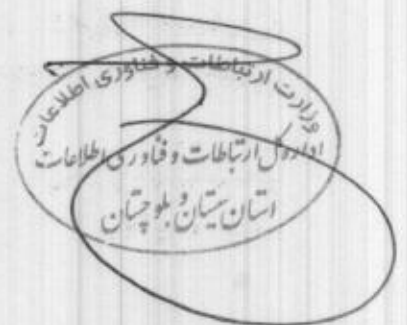 وزارت ارتباطات و فناوری اطلاعات
اداره کل ارتباطات و فناوری اطلاعات
استان سیستان و بلوچستان